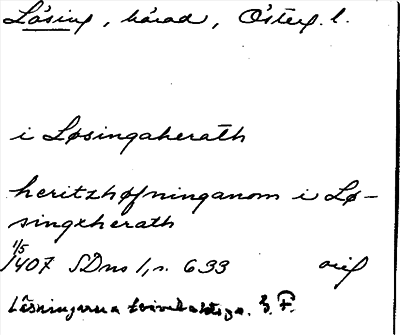 Lösing, härad, Österg. l.
i Løsingaherath
heritzhøfninganom i Lø-
singxherath
1/5
1407 SDns 1, s. 633 orig
Lösningarna tvivelaktiga. G. F.